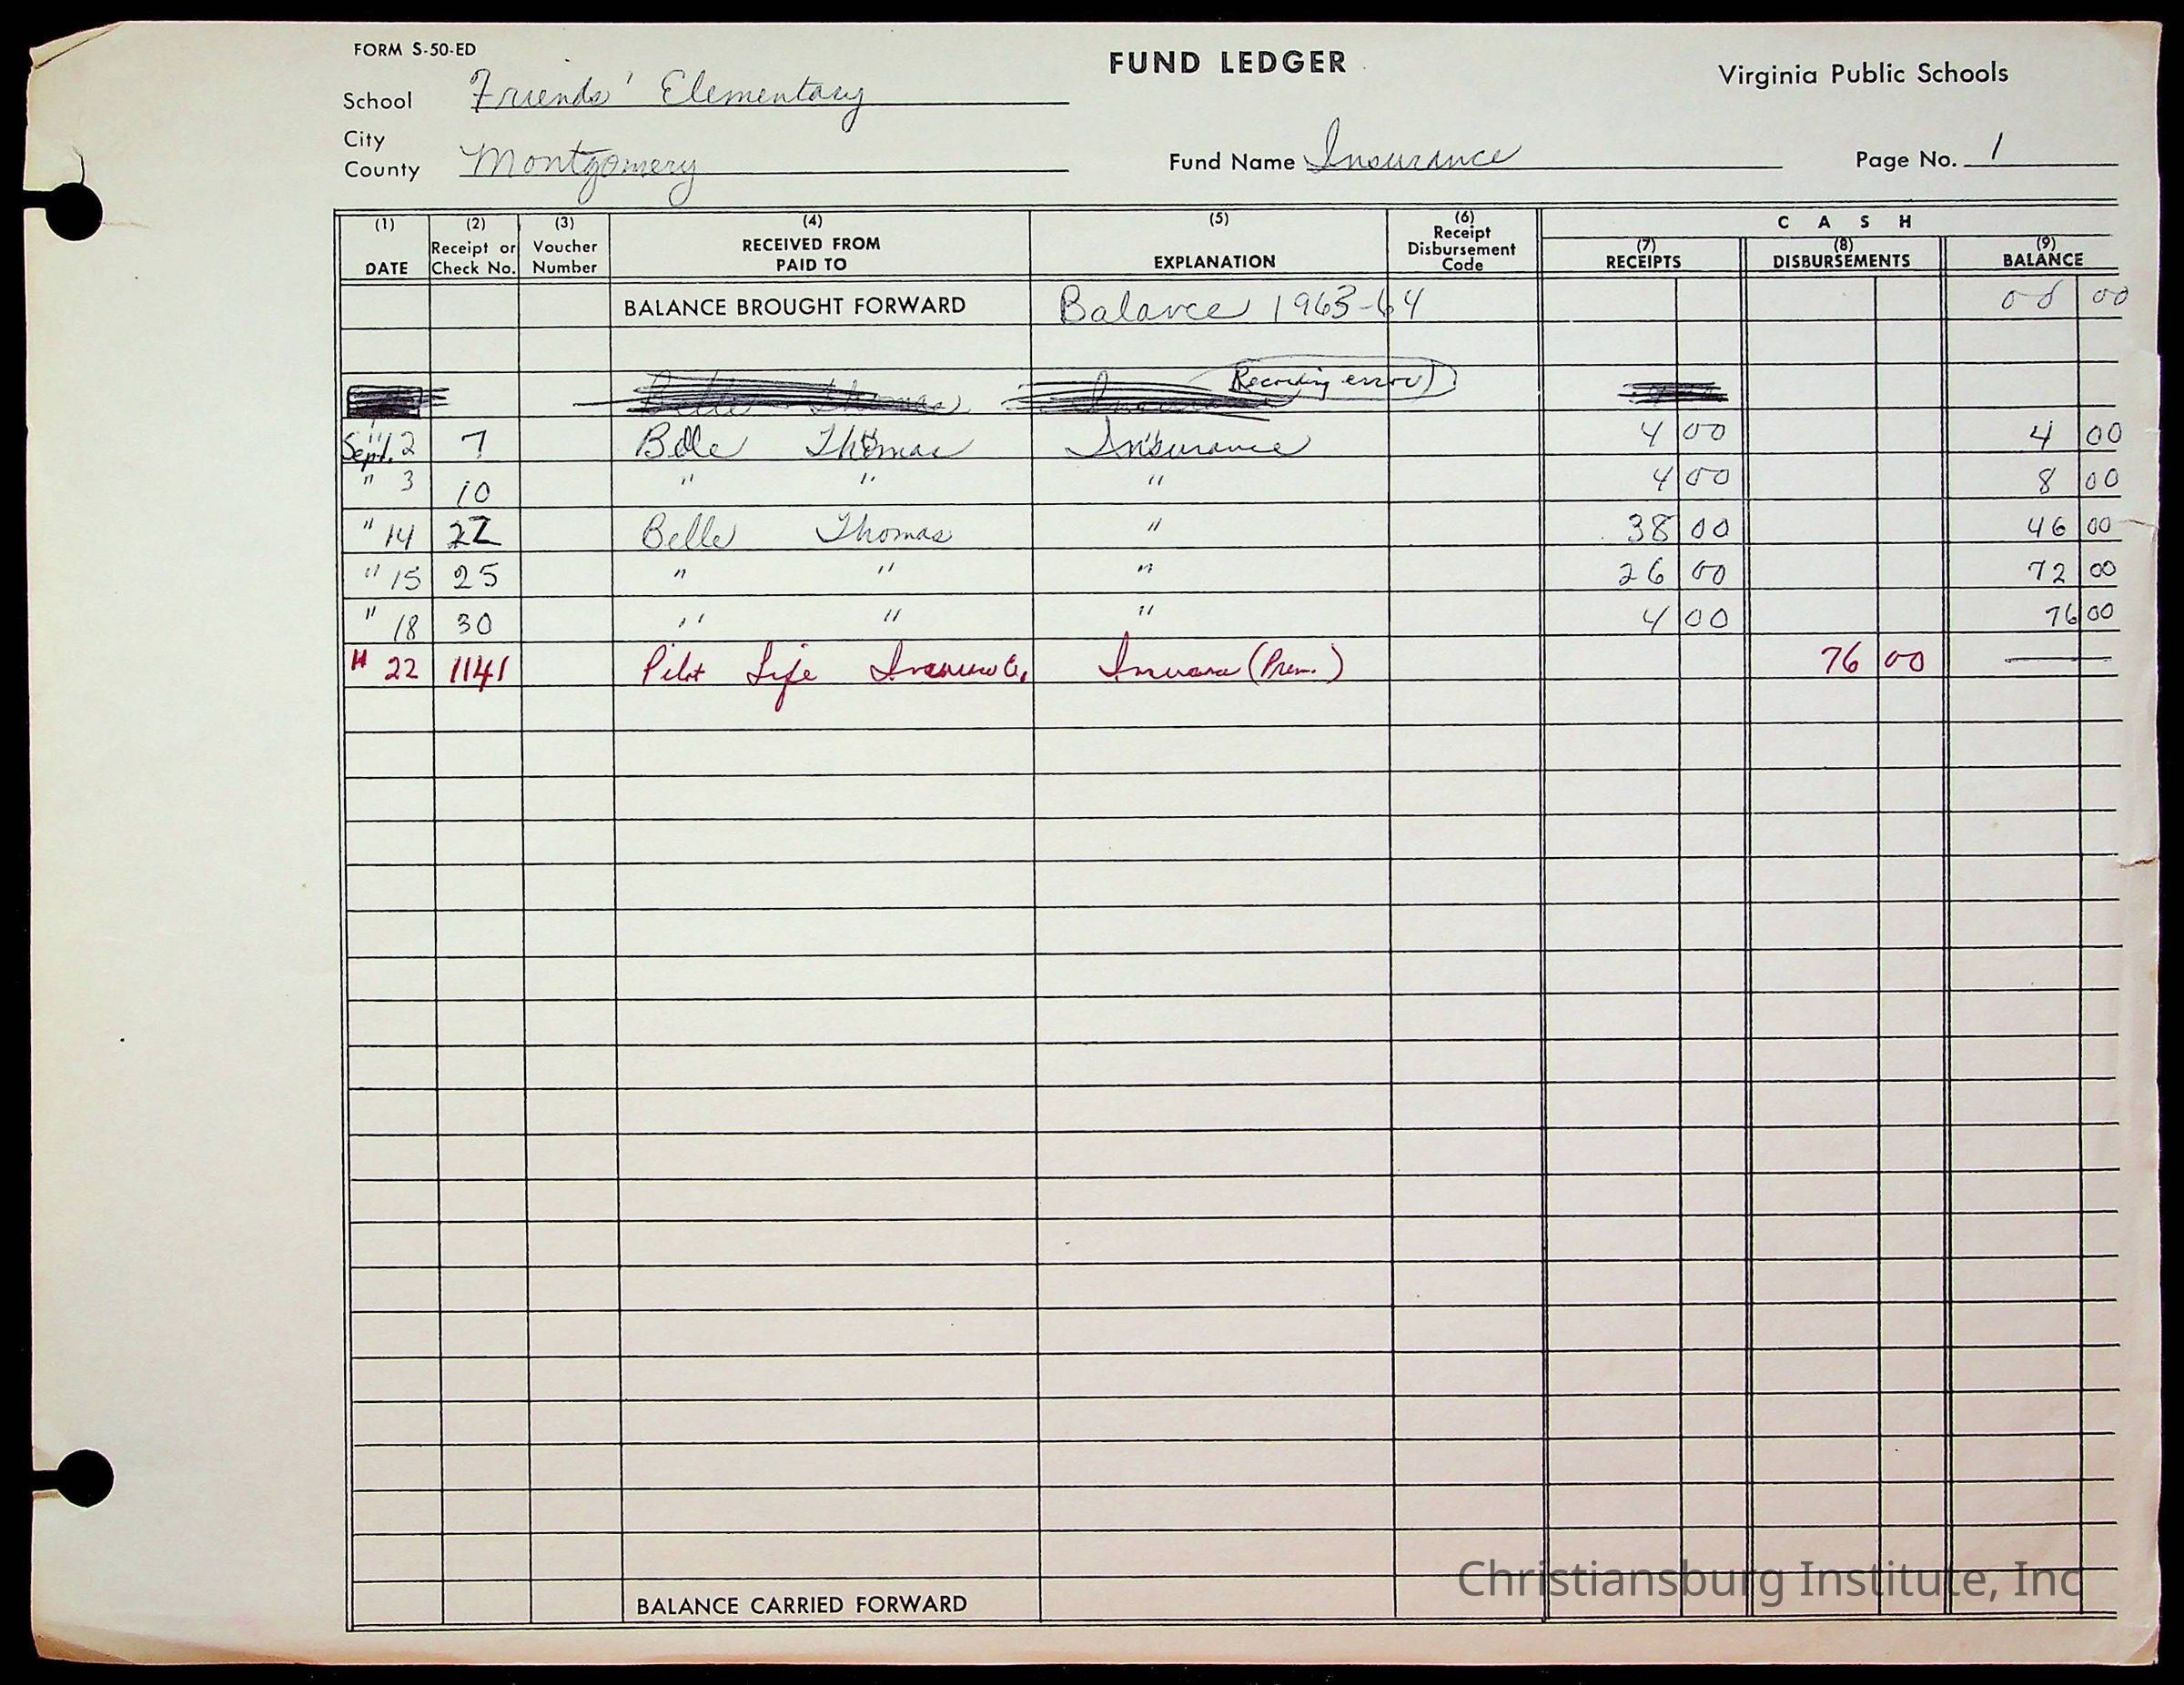 FORM S-50-ED
FUND LEDGER
Virginia Public Schools
School Friends' Elementary
City
County Montgomery
Fund Name Insurance
Page No. 1
(1) (2) (3) (4) (5) (6) C A S H
DATE Receipt or Check No. Voucher Number RECEIVED FROM PAID TO EXPLANATION Receipt Disbursement Code (7) RECEIPTS (8) DISBURSEMENTS (9) BALANCE
BALANCE BROUGHT FORWARD Balance 1963-64 00 00
Belle Thomas Recording error
Sept. 2 7 Belle Thomas Insurance 4 00 4 00
" 3 10 " " " 4 00 8 00
" 14 22 Belle Thomas " 38 00 46 00
" 15 25 " " " 26 00 72 00
" 18 30 " " " 4 00 76 00
" 22 1141 Pilot Life Insurance Co. Insurance (Prem.) 76 00 —
BALANCE CARRIED FORWARD
Christiansburg Institute, Inc